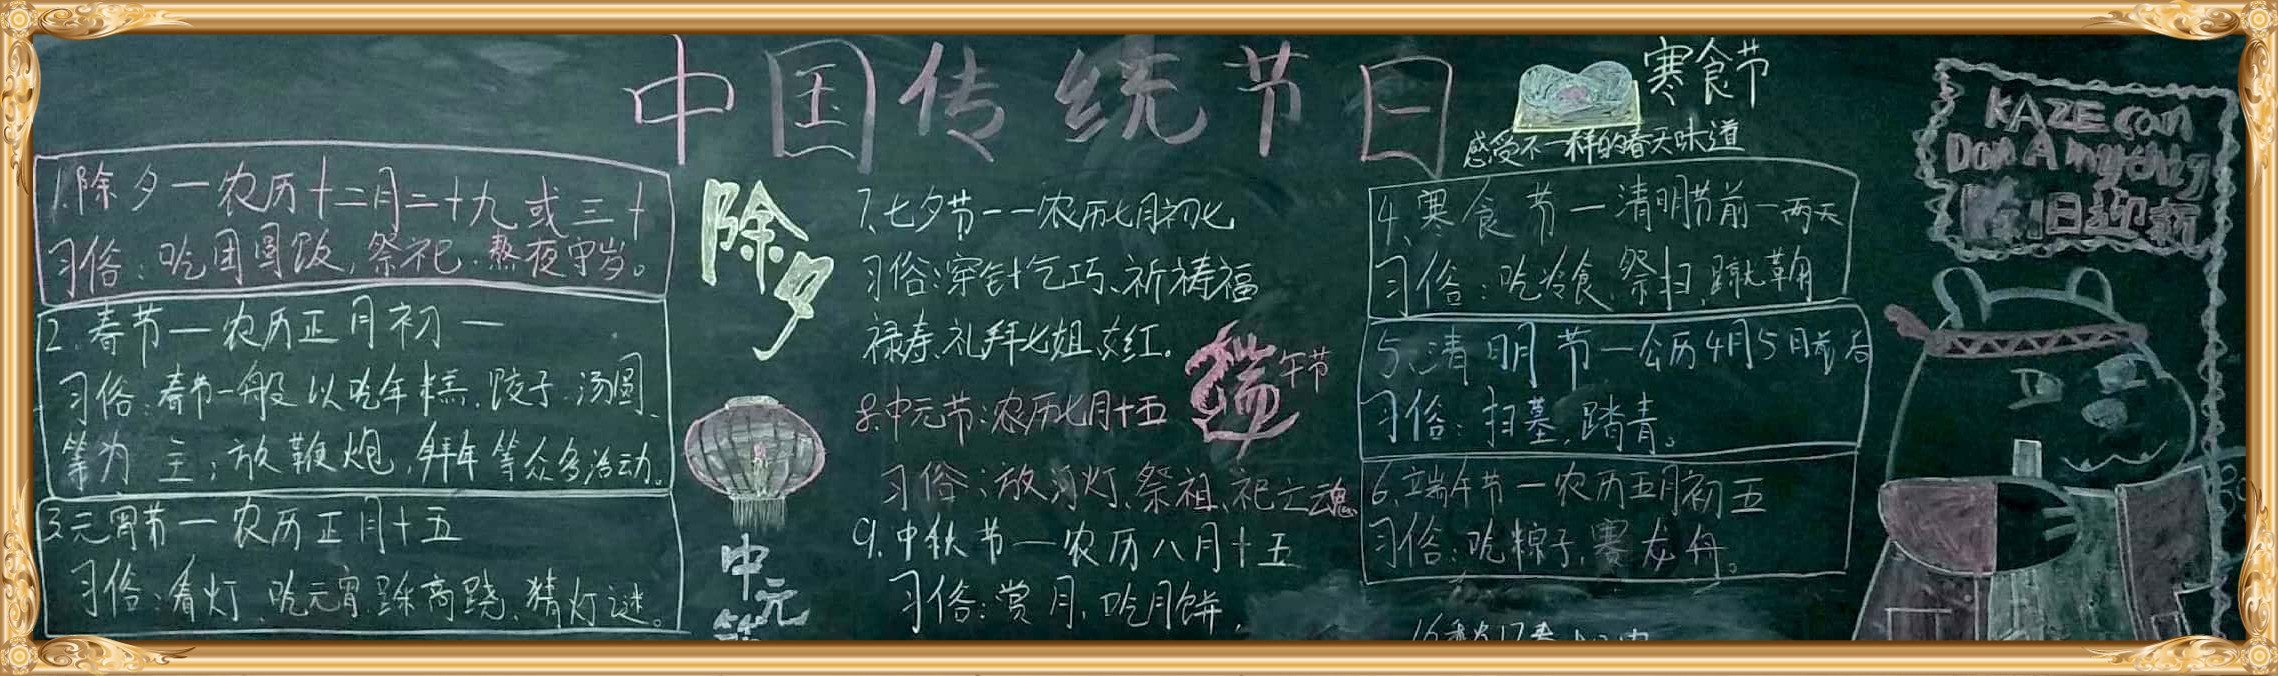 中国传统节日
1.除夕一农历十二月二十九或三十
习俗：吃团圆饭，祭祀，熬夜守岁。
2.春节一农历正月初一
习俗：春节一般以吃年糕、饺子、汤圆、
等为主；放鞭炮，拜年等众多活动。
3.元宵节一农历正月十五
习俗：看灯、吃元宵、踩高跷、猜灯谜。
除夕
中元
7.七夕节一一农历七月初七
习俗：穿针乞巧、祈祷福
禄寿、礼拜七姐、红。
端午节
8.中元节：农历七月十五
习俗：放河灯、祭祖、祀亡魂
9.中秋节一农历八月十五
习俗：赏月，吃月饼，
寒食节
感受不一样的春天味道
4.寒食节一清明节前一两天
习俗：吃冷食、祭扫、蹴鞠
5.清明节一公历4月5日前后
习俗：扫墓、踏青。
6.端午节一农历五月初五
习俗：吃粽子，赛龙舟。
KAZE can
旧迎新